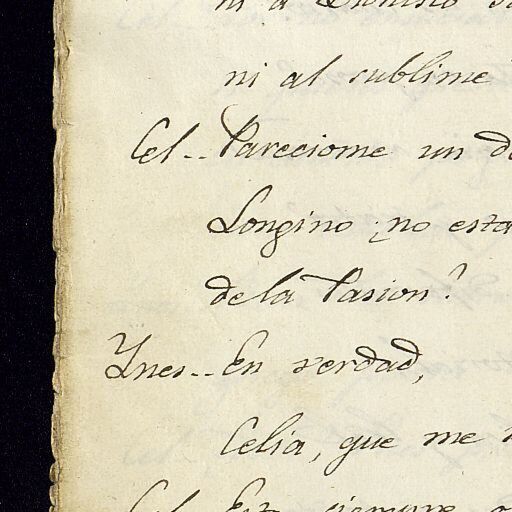 ni á Dionisio
ni al sublime
Cel.. Pareciome un
Longino ¿no esta
de la Pasion?
Ynes.. En verdad,
Celia, que me
Cel Est siempre